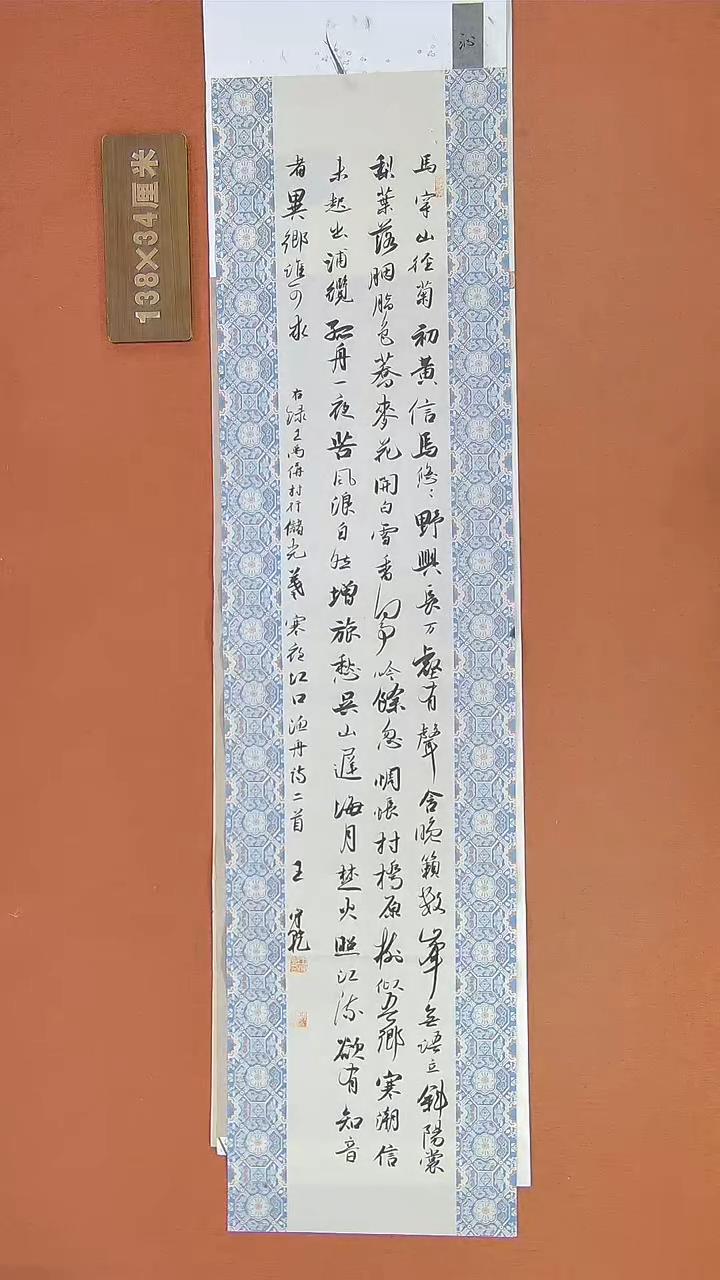 138×34厘米
馬穿山径菊初黄信馬悠〻野興長万壑有聲含晚籟数峯無語立斜陽棠
梨葉落胭脂色蕎麥花開白雪香何事吟餘忽惆悵村橋原樹似吾鄉寒潮信
未起出浦纜孤舟一夜苦風浪自然增旅愁吴山遲海月楚火照江流欲有知音
者異鄉誰可求
右録王禹偁村行儲光羲寒夜江口泊舟詩二首 王